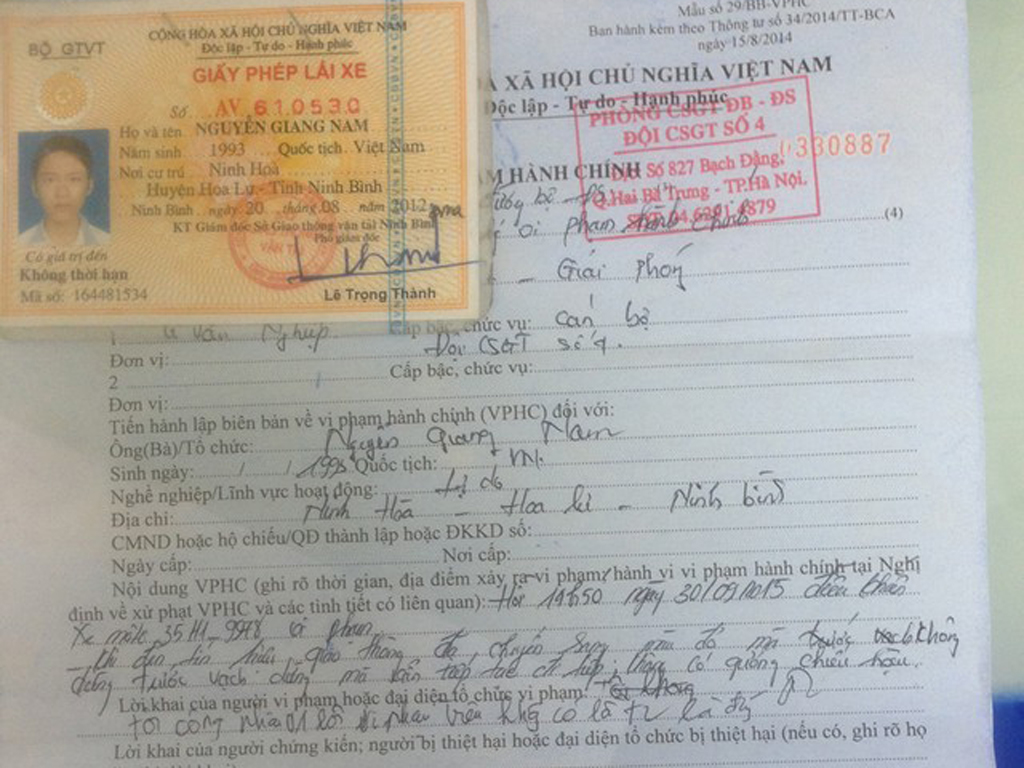 BỘ GTVT
CỘNG HÒA XÃ HỘI CHỦ NGHĨA VIỆT NAM
Độc lập - Tự do - Hạnh phúc
GIẤY PHÉP LÁI XE
Số AV 610530
Họ và tên NGUYỄN GIANG NAM
Năm sinh 1993 Quốc tịch Việt Nam
Nơi cư trú Ninh Hoà
Huyện Hoa Lư - Tỉnh Ninh Bình
Ninh Bình ngày 20 tháng 08 năm 2012
KT Giám đốc Sở Giao thông vận tải Ninh Bình
Phó giám đốc
Có giá trị đến
Không thời hạn
Mã số: 164481534
Lê Trọng Thành
Mẫu số 29/BB-VPHC
Ban hành kèm theo Thông tư số 34/2014/TT-BCA
ngày 15/8/2014
À XÃ HỘI CHỦ NGHĨA VIỆT NAM
Độc lập - Tự do - Hạnh phúc
PHÒNG CSGT ĐB - ĐS
ĐỘI CSGT SỐ 4
Số 827 Bạch Đằng,
Q.Hai Bà Trưng - TP.Hà Nội.
0330887
M HÀNH CHÍNH
phạm hành chính (4)
- Giải phóng
Văn Nghiệp Cấp bậc, chức vụ: Cán bộ
Đơn vị: Đội CSGT số 4.
2 Cấp bậc, chức vụ:
Đơn vị:
Tiến hành lập biên bản về vi phạm hành chính (VPHC) đối với:
Ông(Bà)/Tổ chức: Nguyễn Giang Nam
Sinh ngày: / / 1993 Quốc tịch: VN
Nghề nghiệp/Lĩnh vực hoạt động: Tự do
Địa chỉ: Ninh Hoà - Hoa Lư - Ninh Bình
CMND hoặc hộ chiếu/QĐ thành lập hoặc ĐKKD số:
Ngày cấp: Nơi cấp:
Nội dung VPHC (ghi rõ thời gian, địa điểm xảy ra vi phạm/ hành vi vi phạm hành chính tại Nghị
định về xử phạt VPHC và các tình tiết có liên quan): Hồi 19h50 ngày 30/09/2015 điều khiển
Xe môtô 35H1-9978 vi phạm
- Khi đèn tín hiệu giao thông đã chuyển sang màu đỏ mà không
dừng trước vạch dừng mà vẫn tiếp tục đi tiếp
Lời khai của người vi phạm hoặc đại diện tổ chức vi phạm:
Tôi công nhận lỗi vi phạm trên
Lời khai của người chứng kiến; người bị thiệt hại hoặc đại diện tổ chức bị thiệt hại (nếu có, ghi rõ họ